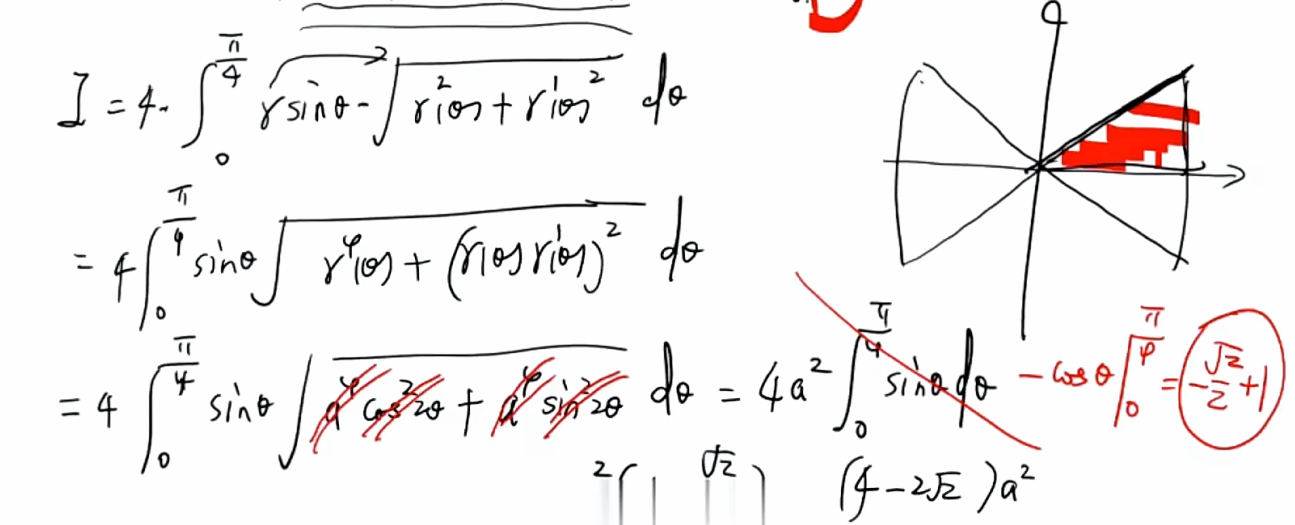 I = 4· ∫₀^{π/4} r sinθ · √(r²(θ) + r'(θ)²) dθ
= 4 ∫₀^{π/4} sinθ √(r⁴(θ) + (r(θ) r'(θ))²) dθ
= 4 ∫₀^{π/4} sinθ √(a⁴cos²2θ + a⁴sin²2θ) dθ = 4a² ∫₀^{π/4} sinθ dθ - cosθ |₀^{π/4} = -√2/2 + 1
(4 - 2√2)a²